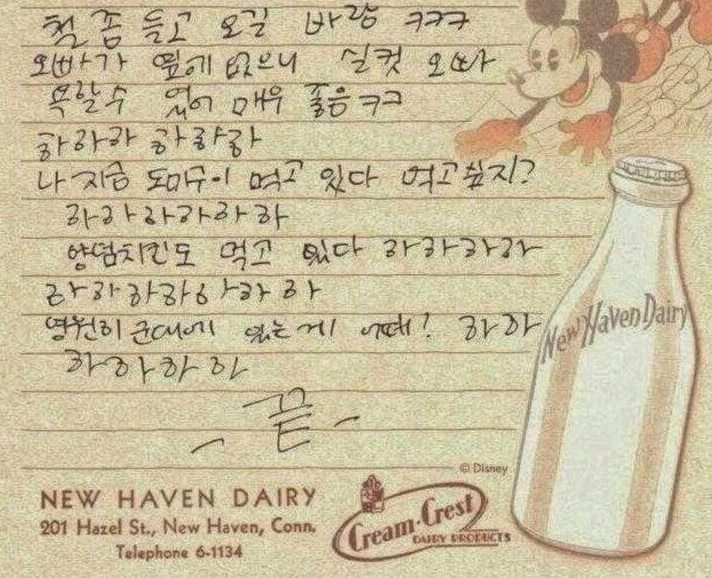 철 좀 들고 오길 바람 ㅋㅋㅋ
오빠가 옆에 없으니 실컷 오빠
욕할수 있어 매우 좋음 ㅋㅋ
하하하 하하하
나 지금 도미누이 먹고 있다 먹고싶지?
하하하하하하
양념치킨도 먹고 있다 하하하하
하하하하하하하
영원히 군대에 있는게 어때! 하하
하하하하
- 끝 -
New Haven Dairy
© Disney
NEW HAVEN DAIRY
201 Hazel St., New Haven, Conn.
Telephone 6-1134
Cream-Crest
DAIRY PRODUCTS